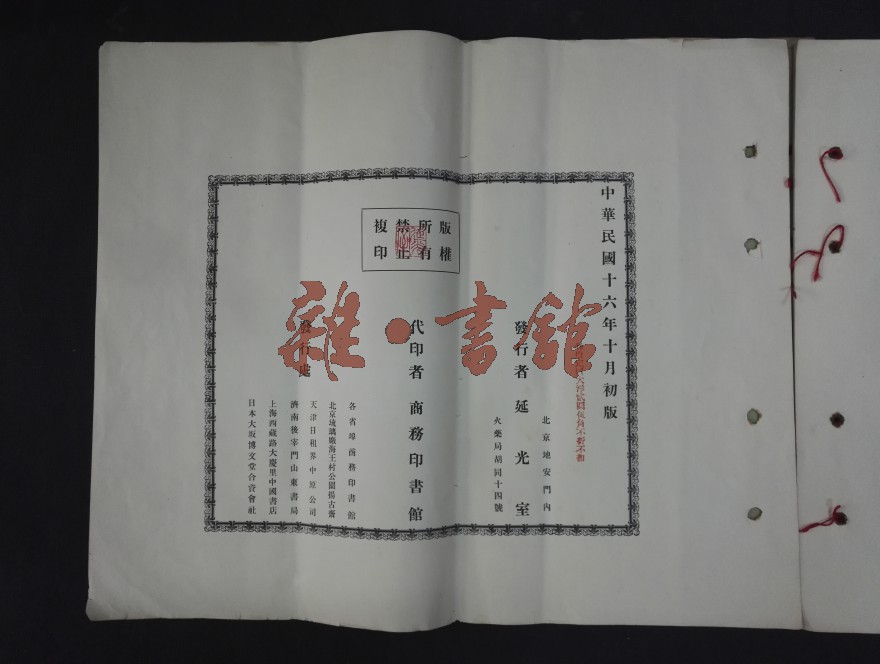 中華民國十六年十月初版
北京地安門內
火藥局胡同十四號
發行者 延光室
版權所有
禁止複印
代印者 商務印書館
發行處
各省埠商務印書館
北京琉璃廠海王村公園揚古齋
天津日租界中原公司
濟南後宰門山東書局
上海西藏路大慶里中國書店
日本大坂博文堂合資會社
雜·書館